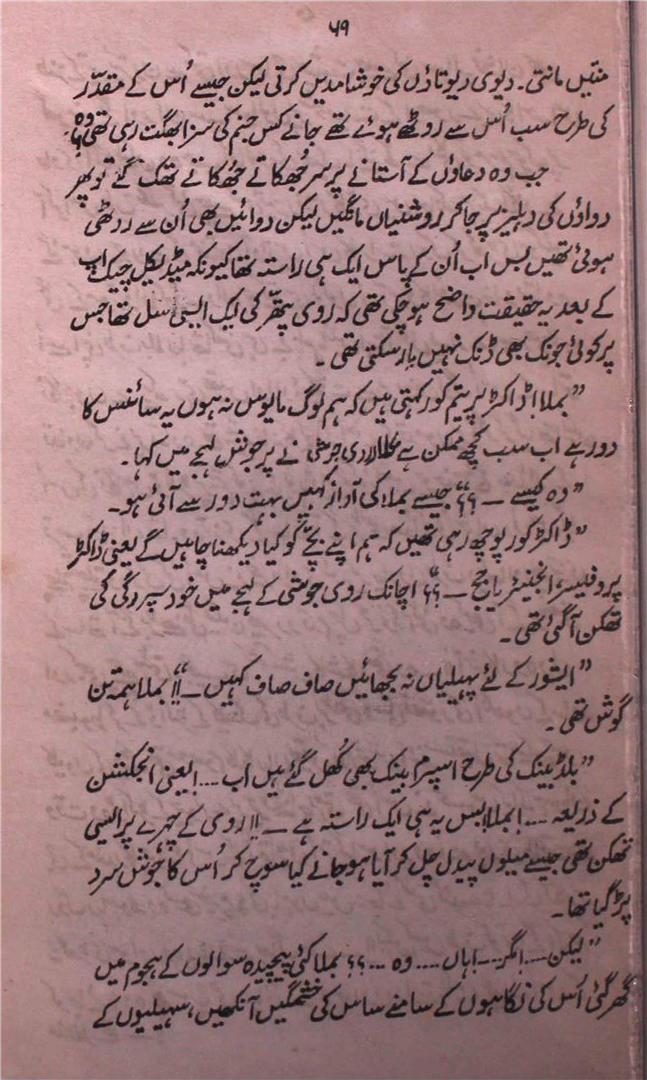 ۶۹
منتیں مانتی۔ دیوی دیوتاؤں کی خوشامدیں کرتی لیکن جیسے اُس کے مقدّر
کی طرح سب اُس سے روٹھے ہوئے تھے جانے کس جنم کی سزا بھگت رہی تھی وہ؟
جب وہ دعاؤں کے آستانے پر سر جُھکاتے جُھکاتے تھک گئے تو پھر
دواؤں کی دہلیز پر جا کر روشنیاں مانگیں لیکن دوائیں بھی اُن سے روٹھی
ہوئی تھیں بس اب اُن کے پاس ایک ہی راستہ تھا کیونکہ میڈیکل چیک اپ
کے بعد یہ حقیقت واضح ہو چکی تھی کہ روی پتھّر کی ایک ایسی سل تھا جس
پر کوئی جونک بھی ڈنک نہیں مار سکتی تھی۔
”بملا! ڈاکٹر پریتم کور کہتی ہیں کہ ہم لوگ مایوس نہ ہوں یہ سائنس کا
دور ہے اب سب کچھ ممکن ہے روی جوشی نے پرجوش لہجے میں کہا۔
”وہ کیسے ــ ؟؟“ جیسے بملا کی آواز کہیں بہت دور سے آئی ہو۔
”ڈاکٹر کور پوچھ رہی تھیں کہ ہم اپنے بچّے کو کیا دیکھنا چاہیں گے یعنی ڈاکٹر
پروفیسر، انجنیئر یا جج ــ ؟؟“ اچانک روی جوشی کے لہجے میں خود سپردگی کی
تھکن آ گئی تھی۔
”ایشور کے لئے پہیلیاں نہ بجھائیں صاف صاف کہیں ــ!!“ بملا ہمہ تن
گوش تھی۔
”بلڈ بینک کی طرح اسپرم بینک بھی کُھل گئے ہیں اب ۔۔۔! یعنی انجکشن
کے ذریعہ ۔۔۔! بملا! بس یہ ہی ایک راستہ ہے ــ!! روی کے چہرے پر ایسی
تھکن تھی جیسے میلوں پیدل چل کر آیا ہو جانے کیا سوچ کر اُس کا جوش سرد
پڑ گیا تھا۔
”لیکن ۔۔۔! مگر ۔۔۔! ہاں ۔۔۔۔ وہ ۔۔۔ ؟؟ بملا کئی پیچیدہ سوالوں کے ہجوم میں
گھر گئی اُس کی نگاہوں کے سامنے ساس کی خشمگیں آنکھیں، سہیلیوں کے